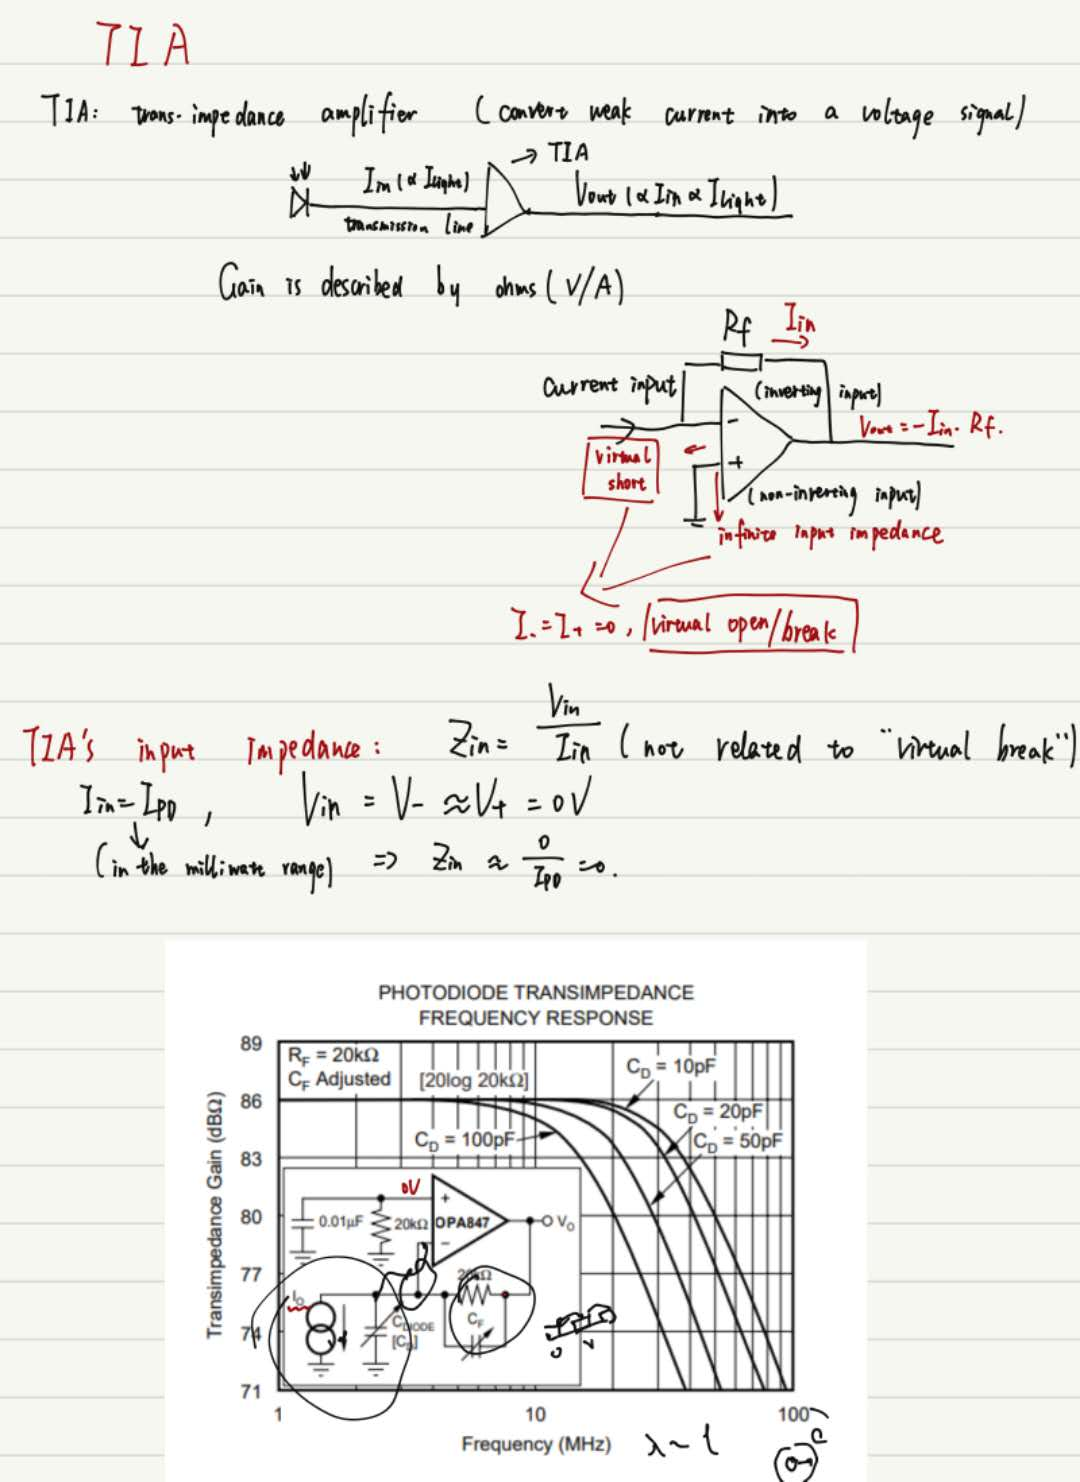 TIA
TIA: trans-impedance amplifier (convert weak current into a voltage signal)
→ TIA
Iin (∝ Ilight)
Vout (∝ Iin ∝ Ilight)
transmission line
Gain is described by ohms (V/A)
Rf Iin
current input
(inverting input)
-
Vout = -Iin· Rf.
virtual
short
+
(non-inverting input)
infinite input impedance
I- = I+ = 0, virtual open/break
TIA's input Impedance: Zin = Vin/Iin (not related to "virtual break")
Iin = IPD, Vin = V- ≈ V+ = 0V
(in the milliwatt range) => Zin ≈ 0/IPD = 0.
PHOTODIODE TRANSIMPEDANCE
FREQUENCY RESPONSE
89
RF = 20kΩ
CF Adjusted
[20log 20kΩ]
CD = 10pF
86
CD = 20pF
CD = 100pF
CD = 50pF
83
0V
+
80
0.01μF
20kΩ
OPA847
VO
-
77
20kΩ
IO
CF
CDIODE
[CD]
74
71
Transimpedance Gain (dBΩ)
1 10 100
Frequency (MHz)
λ ~ l